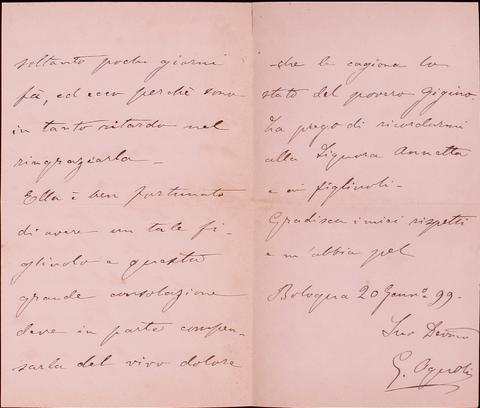 soltanto pochi giorni
fà, ed ecco perchè sono
in tanto ritardo nel
ringraziarla -
Ella è ben fortunato
di avere un tale fi-
gliuolo e questa
grande consolazione
deve in parte compen-
sarla del vivo dolore
che le cagiona lo
stato del povero Gigino.
La prego di ricordarmi
alla Signora Annetta
e ai figliuoli -
Gradisca i miei rispetti
e m'abbia pel
Bologna 20 Genn° 99 -
Suo Devmo
G.